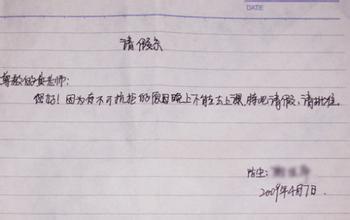 DATE
请假条
尊敬的安老师:
您好!因为有不可抗拒的原因晚上不能去上课,特此请假,请批准。
陪生:
2009年4月7日.